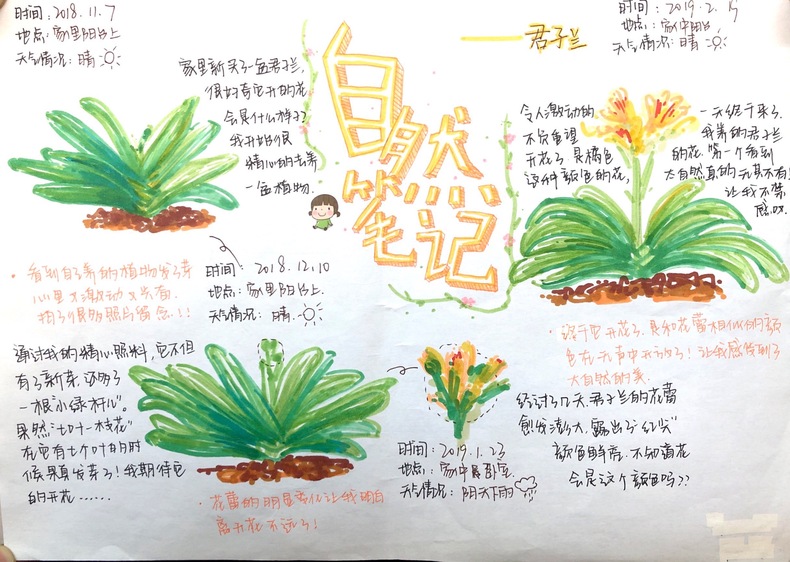 自然笔记
——君子兰
时间：2018.11.7
地点：家里阳台上
天气情况：晴
家里新买了一盆君子兰，
很好奇它开的花
会是什么样子？
我开始很
精心的去养
一盆植物.
看到自己养的植物发了芽
心里太激动又兴奋.
拍了很多照片留念!!!
时间：2018.12.10
地点：家里阳台上.
天气情况：晴.
通过我的精心照料,它不但
有了新芽,还多了
一根"小绿杆儿"。
果然"七叶一枝花"
在它有七个叶的时
候果真发芽了!我期待它
的开花……
花蕾的明显变化让我明白
离开花不远了!
时间：2019.1.23
地点：家中卧室.
天气情况：阴天下雨
经过了几天.君子兰的花蕾
愈发澎大.露出了"红尖"
颜色鲜亮.不知道花
会是这个颜色吗??
时间：2019.2.15
地点：家中阳台
天气情况：晴
令人激动的
不负重望
开花了.是橘色
这种颜色的花,
一天终于来了.
我养的君子兰
的花.第一个看到
大自然真的无其不有!
让我不禁
感叹.
终于它开花了.是和花蕾相似的颜
色在无声中开放了!让我感受到了
大自然的美.